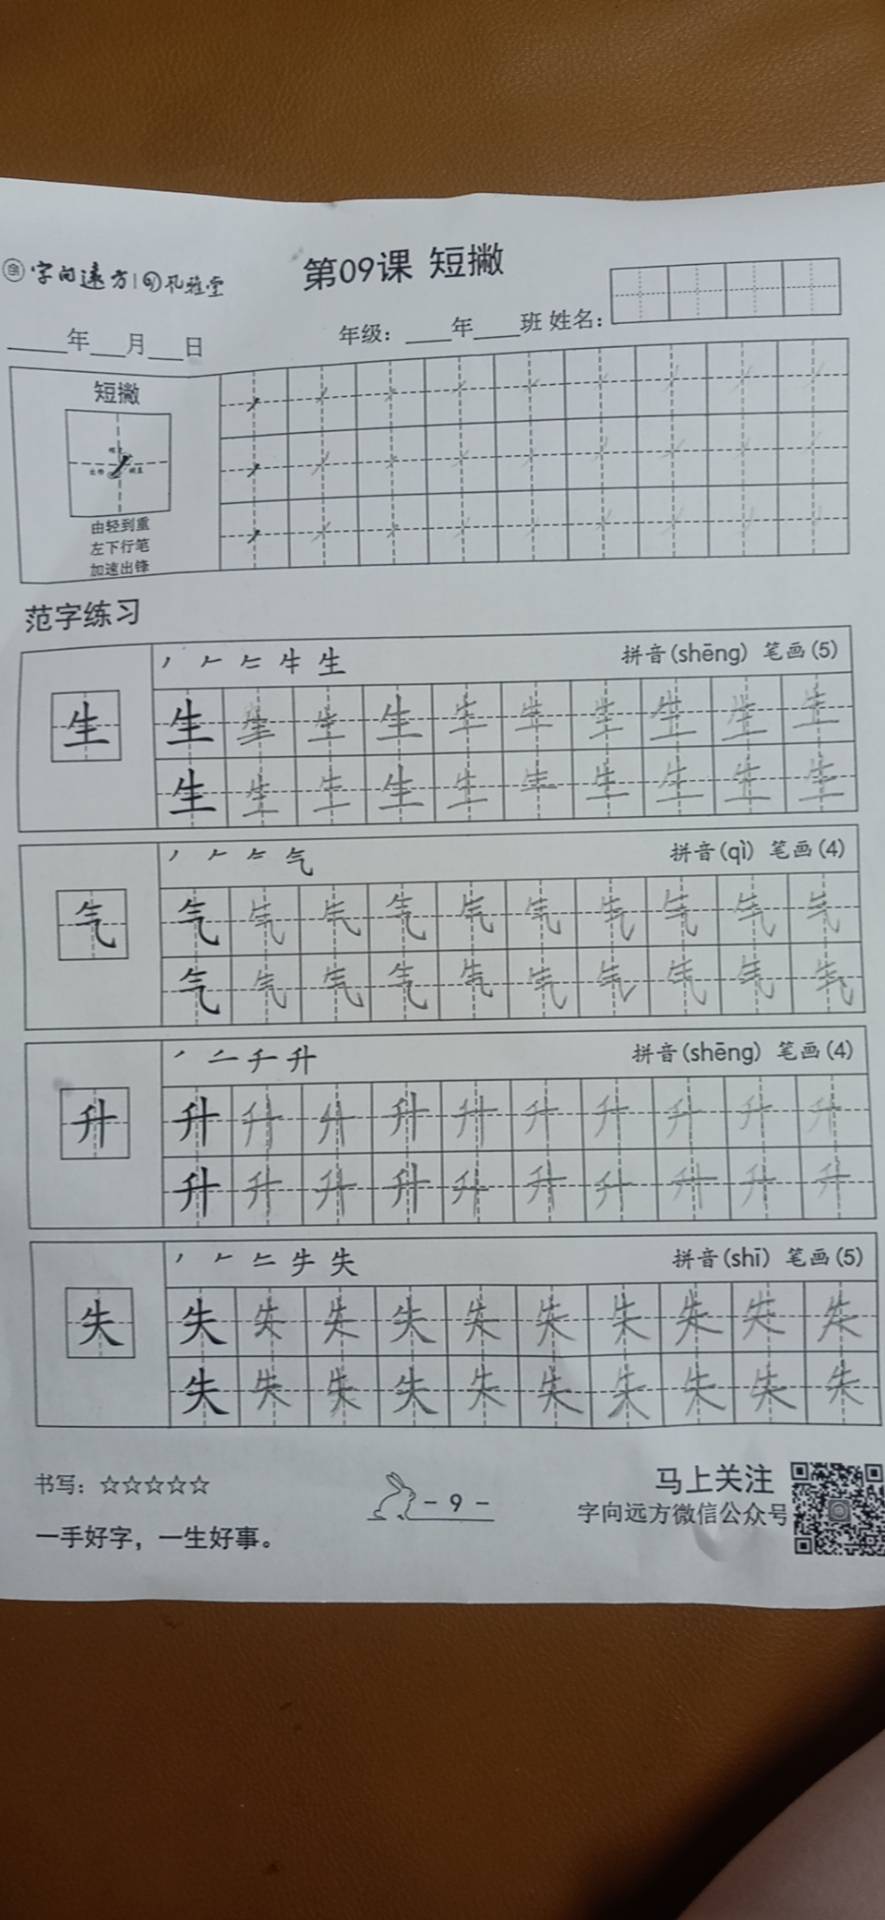 字向远方 | 孔雅堂
第09课 短撇
年 月 日 年级: 年 班 姓名:
短撇
由轻到重
左下行笔
加速出锋
范字练习
丿 𠂉 𠂒 牛 生 拼音(shēng) 笔画(5)
生 生 生 生 生 生 生 生 生 生 生
生 生 生 生 生 生 生 生 生 生
气 拼音(qì) 笔画(4)
气 气 气 气 气 气 气 气 气 气 气
气 气 气 气 气 气 气 气 气 气
千 升 拼音(shēng) 笔画(4)
升 升 升 升 升 升 升 升 升 升 升
升 升 升 升 升 升 升 升 升 升
失 拼音(shī) 笔画(5)
失 失 失 失 失 失 失 失 失 失 失
失 失 失 失 失 失 失 失 失 失
书写: ☆☆☆☆☆
一手好字，一生好事。
- 9 -
马上关注
字向远方微信公众号